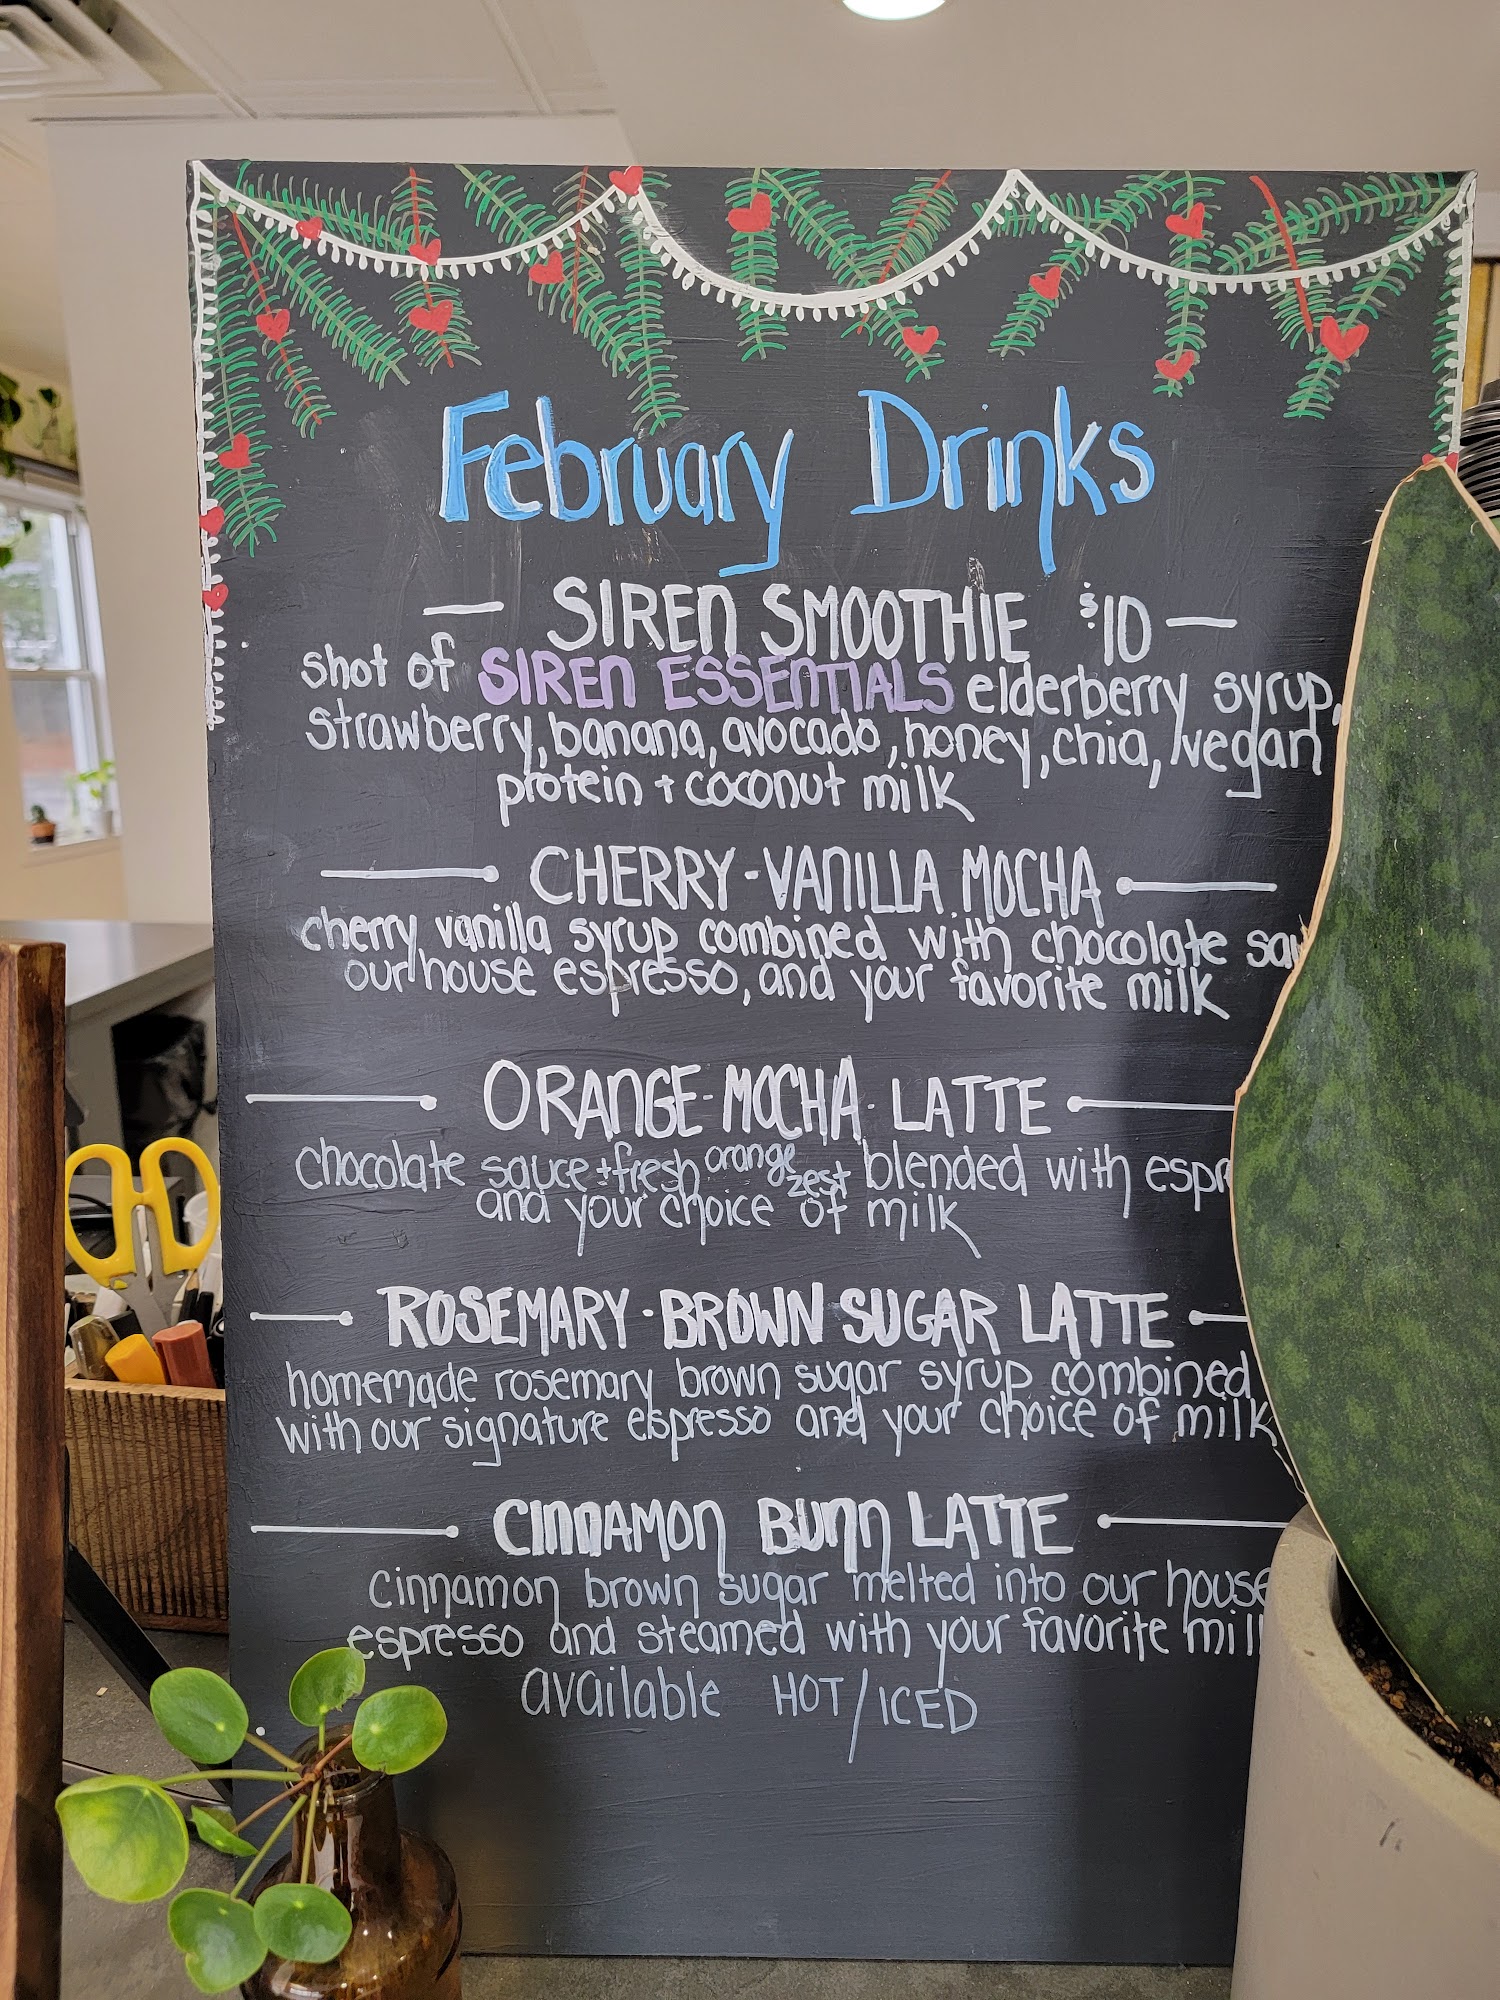 February Drinks
SIREN SMOOTHIE $10
shot of SIREN ESSENTIALS elderberry syrup,
strawberry, banana, avocado, honey, chia, vegan
protein + coconut milk
CHERRY-VANILLA MOCHA
cherry vanilla syrup combined with chocolate
our house espresso, and your favorite milk
ORANGE-MOCHA-LATTE
chocolate sauce + fresh orange zest blended with
and your choice of milk
ROSEMARY-BROWN SUGAR LATTE
homemade rosemary brown sugar syrup combined
with our signature espresso and your choice of milk
CINNAMON BUNN LATTE
cinnamon brown sugar melted into our house
espresso and steamed with your favorite
available HOT/ICED